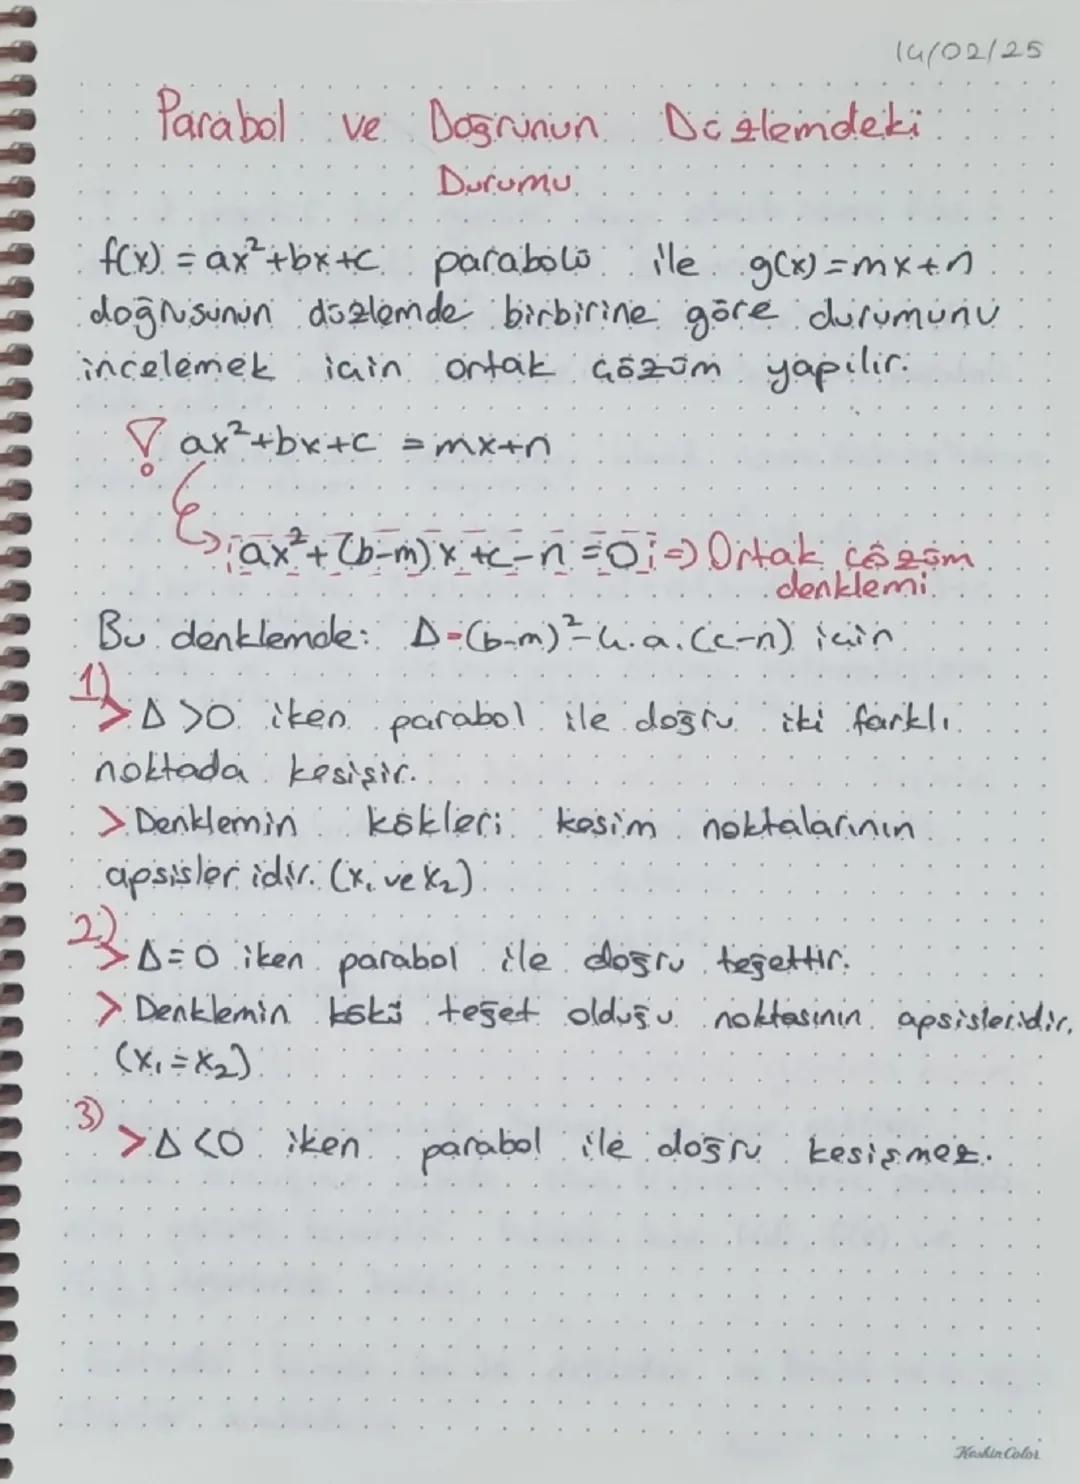 14/02/25
Parabol ve Doğrunun Düzlemdeki
Durumu
f(x) = ax²+bx+c parabolü ile g(x)=mx+n
doğrusunun düzlemde birbirine göre durumunu
incelemek için ortak çözüm yapılır.
! ax²+bx+c = mx+n
ax²+(b-m)x+c-n=0 ⇒ Ortak çözüm
denklemi
Bu denklemde: Δ=(b-m)²-4.a.(c-n) için
1)
>Δ>0 iken parabol ile doğru iki farklı
noktada kesişir.
>Denklemin kökleri kesim noktalarının
apsisleridir. (x₁ ve x₂)
2)
>Δ=0 iken parabol ile doğru teğettir.
>Denklemin kökü teğet olduğu noktasının apsisleridir.
(x₁=x₂)
3)
>Δ<0 iken parabol ile doğru kesişmez.
HashinColor